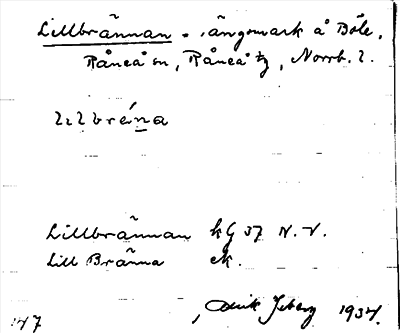 Lillbrännan - ängsmark å Böle,
Råneå sn, Råneå tg, Norrb. l.
lılbréna
Lillbrännan kG 37 N.V.
Lill Bränna ek.
1934.
47